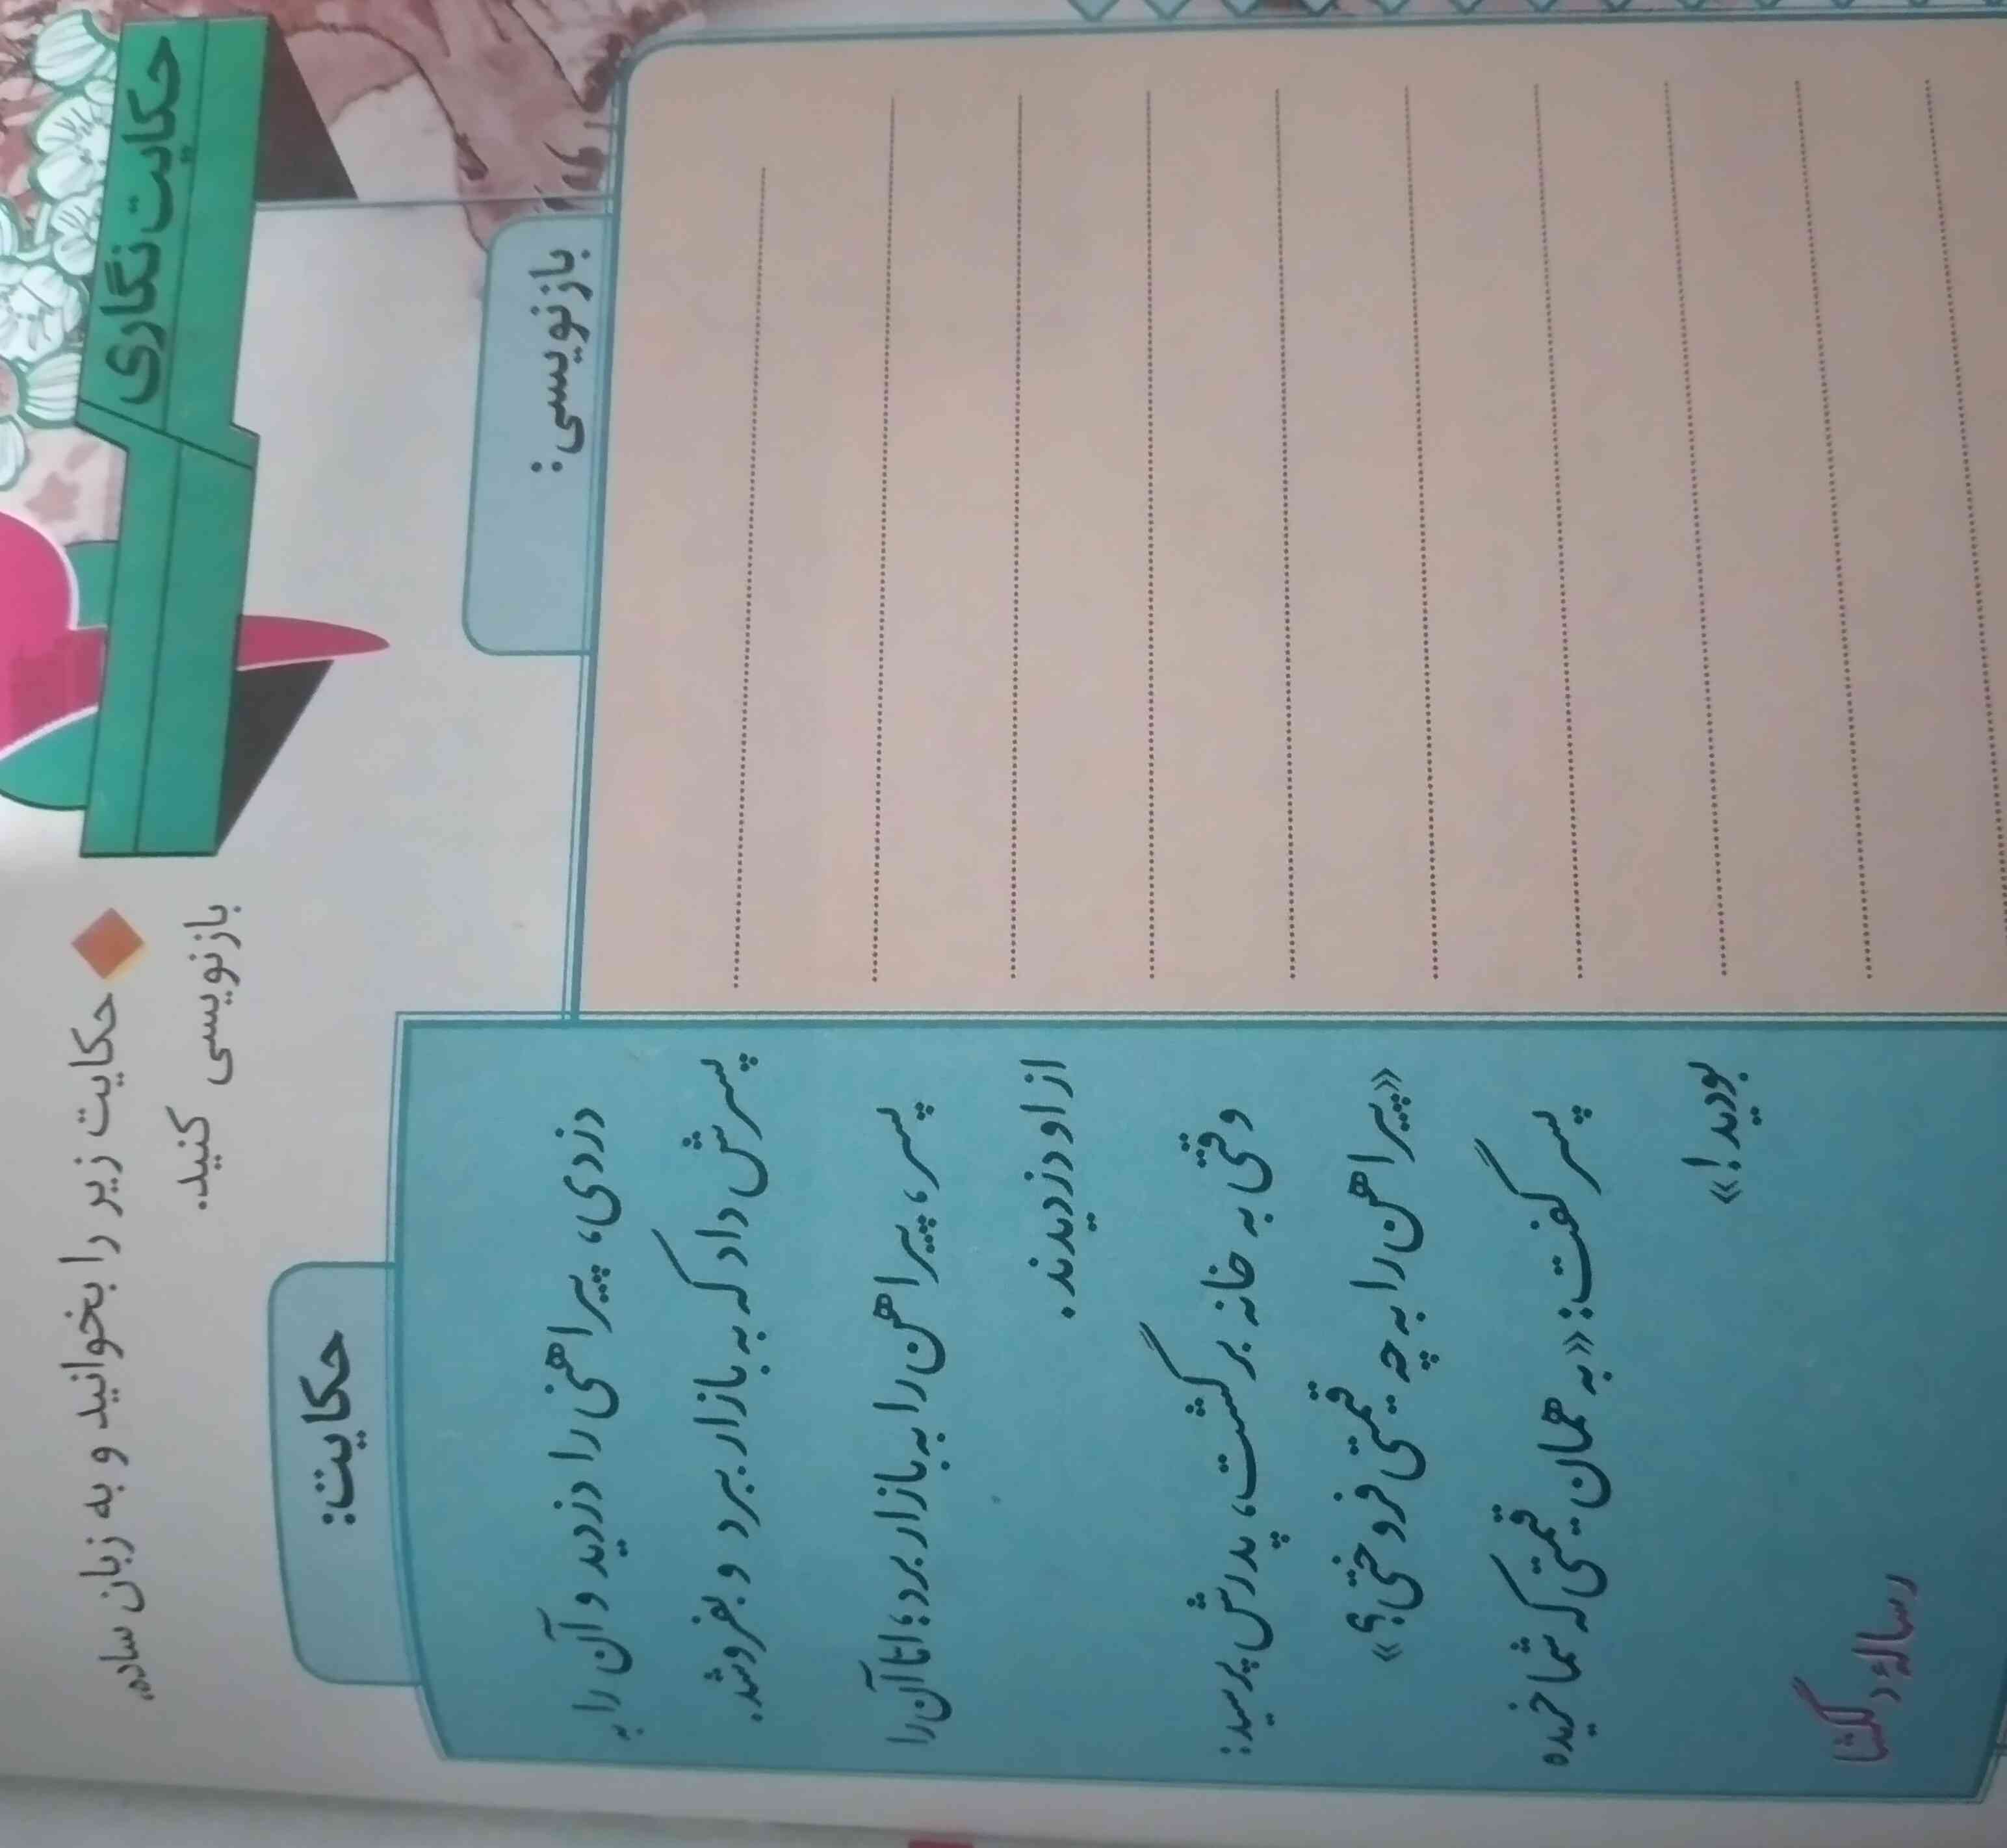 حکایت نگاری
حکایت زیر را بخوانید و به زبان ساده،
بازنویسی کنید.
حکایت:
دزدی، پیراهنی را دزدید و آن را به
پسرش داد که به بازار ببرد و بفروشد.
پسر، پیراهن را به بازار برد؛ امّا آن را
از او دزدیدند.
وقتی به خانه برگشت، پدرش پرسید:
«پیراهن را به چه قیمتی فروختی؟»
پسر گفت: «به همان قیمتی که شما خریده
بودید!»
رسالهٔ دلگشا
بازنویسی: